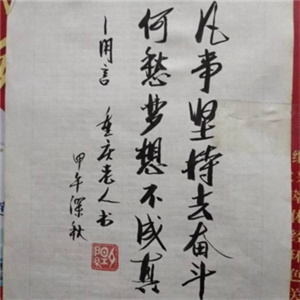 凡事坚持去奋斗
何愁梦想不成真
用言 重庆老人书
甲午深秋